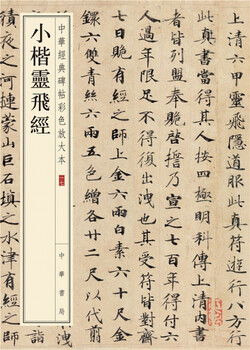 中華經典碑帖彩色放大本
小楷靈飛經
中華書局
上清六甲靈飛隱道服此真符遊行八方行
此真書當得其人按四極明科傳上清內書
者皆列盟奉贶啓誓乃宣之七百年得付六
人過年限足不得復出泄也其受符皆對齋
七日贶有經之師上金六兩白素六十尺金
鐶六雙青絲六兩五色繒各廿二尺以代翦
積夜之河捷蒙山巨石填之水津有經